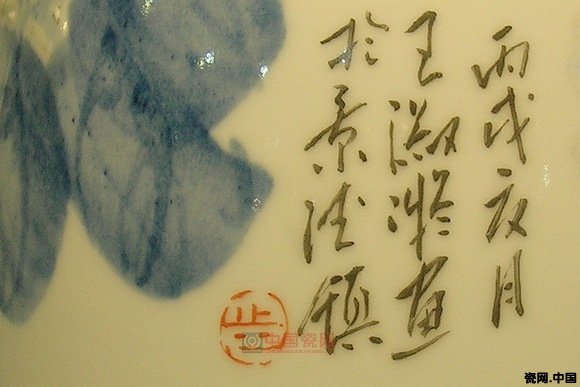 丙戌夏月
王淑凝画
於景德镇
中国瓷网
瓷网.中国